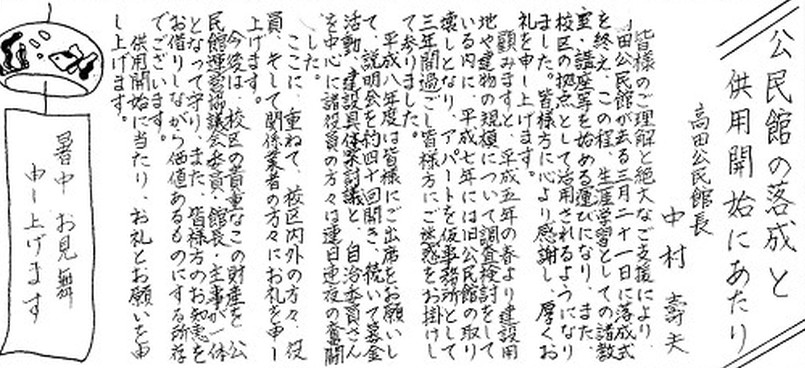 公民館の落成と
供用開始にあたり
高田公民館長
中村 壽夫
皆様のご理解と絶大なご支援により、
高田公民館が去る三月二十一日に落成式
を終え、この程、生涯学習としての諸教
室・講座等を始める運びになり、また、
校区の拠点として活用されるようになり
ました。皆様方に心より感謝し、厚くお
礼を申し上げます。
顧みますと、平成五年の春より建設用
地や建物の規模について調査検討をして
いる内に、平成七年には旧公民館の取り
壊しとなり、アパートを仮事務所として
三年間過ごし皆様方にご迷惑をお掛けし
て参りました。
平成八年度は皆様にご出席をお願いし
て、説明会を約四十回開き、続いて募金
活動、建設具体案討議と、自治委員さん
を中心に諸役員の方々は連日連夜の奮闘
でした。
ここに、重ねて、校区内外の方々、役
員、そして関係業者の方々にお礼を申し
上げます。
今後は、校区の貴重なこの財産を、公
民館運営協議会委員・館長・主事が一体
となって守り、また、皆様方のお知恵を
お借りしながら価値あるものにする所存
でございます。
供用開始に当たり、お礼とお願いを申
し上げます。
暑中 お見舞
申し上げます